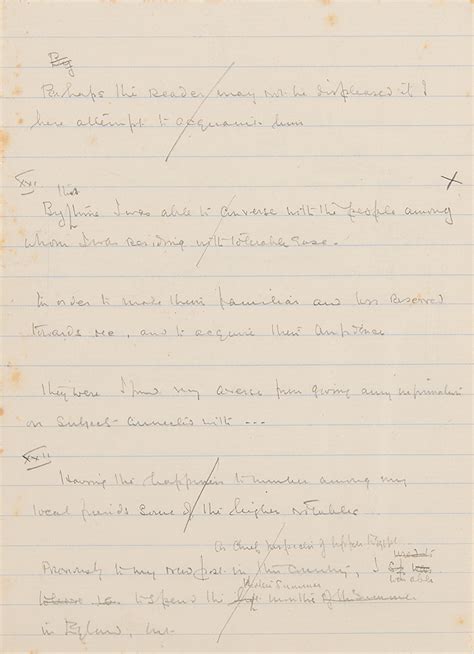 Perhaps the reader may not be displeased if I
here attempt to acquaint him
XXI this
By time I was able to converse with the people among X
whom I was residing with tolerable ease.
in order to make them familiar and less reserved
towards me, and to acquire their confidence
they were I found very averse from giving any information
on subjects connected with ...
XXII
Having the happiness to number among my
local friends some of the higher notables
As Chief Inspector of Upper Egypt
Previously to my new post in the country, I
was able
to spend the months of the summer
in England, but